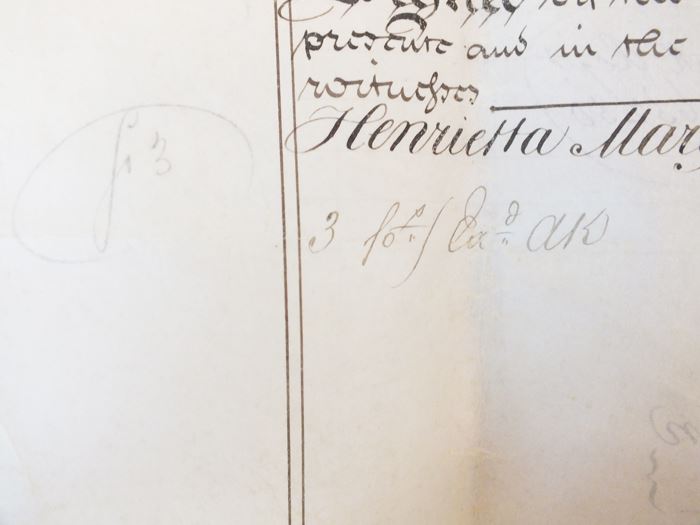 presence and in the
witnesses
Henrietta Mary
fo 3
3 fos / Exd AK